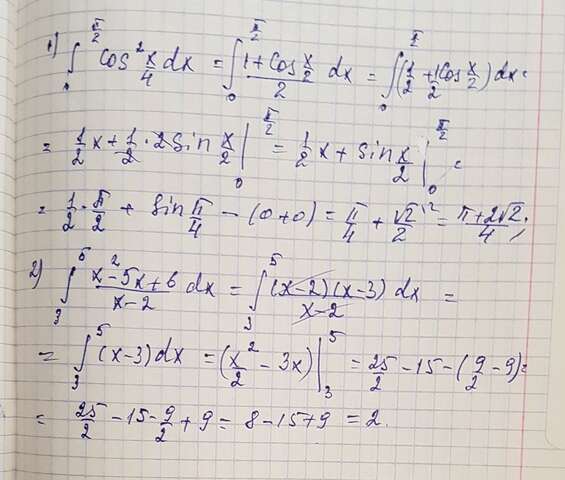 1) ∫₀^{π/2} cos² x/4 dx = ∫₀^{π/2} (1+cos x/2)/2 dx = ∫₀^{π/2} (1/2 + 1/2 cos x/2) dx =
= 1/2 x + 1/2 · 2 sin x/2 |₀^{π/2} = 1/2 x + sin x/2 |₀^{π/2} =
= 1/2 · π/2 + sin π/4 − (0+0) = π/4 + √2/2 ^{\2} = (π+2√2)/4 ;
2) ∫₃^5 (x²−5x+6)/(x−2) dx = ∫₃^5 (x−2)(x−3)/(x−2) dx =
= ∫₃^5 (x−3)dx = (x²/2 − 3x) |₃^5 = 25/2 − 15 − (9/2 − 9) =
= 25/2 − 15 − 9/2 + 9 = 8 − 15 + 9 = 2.